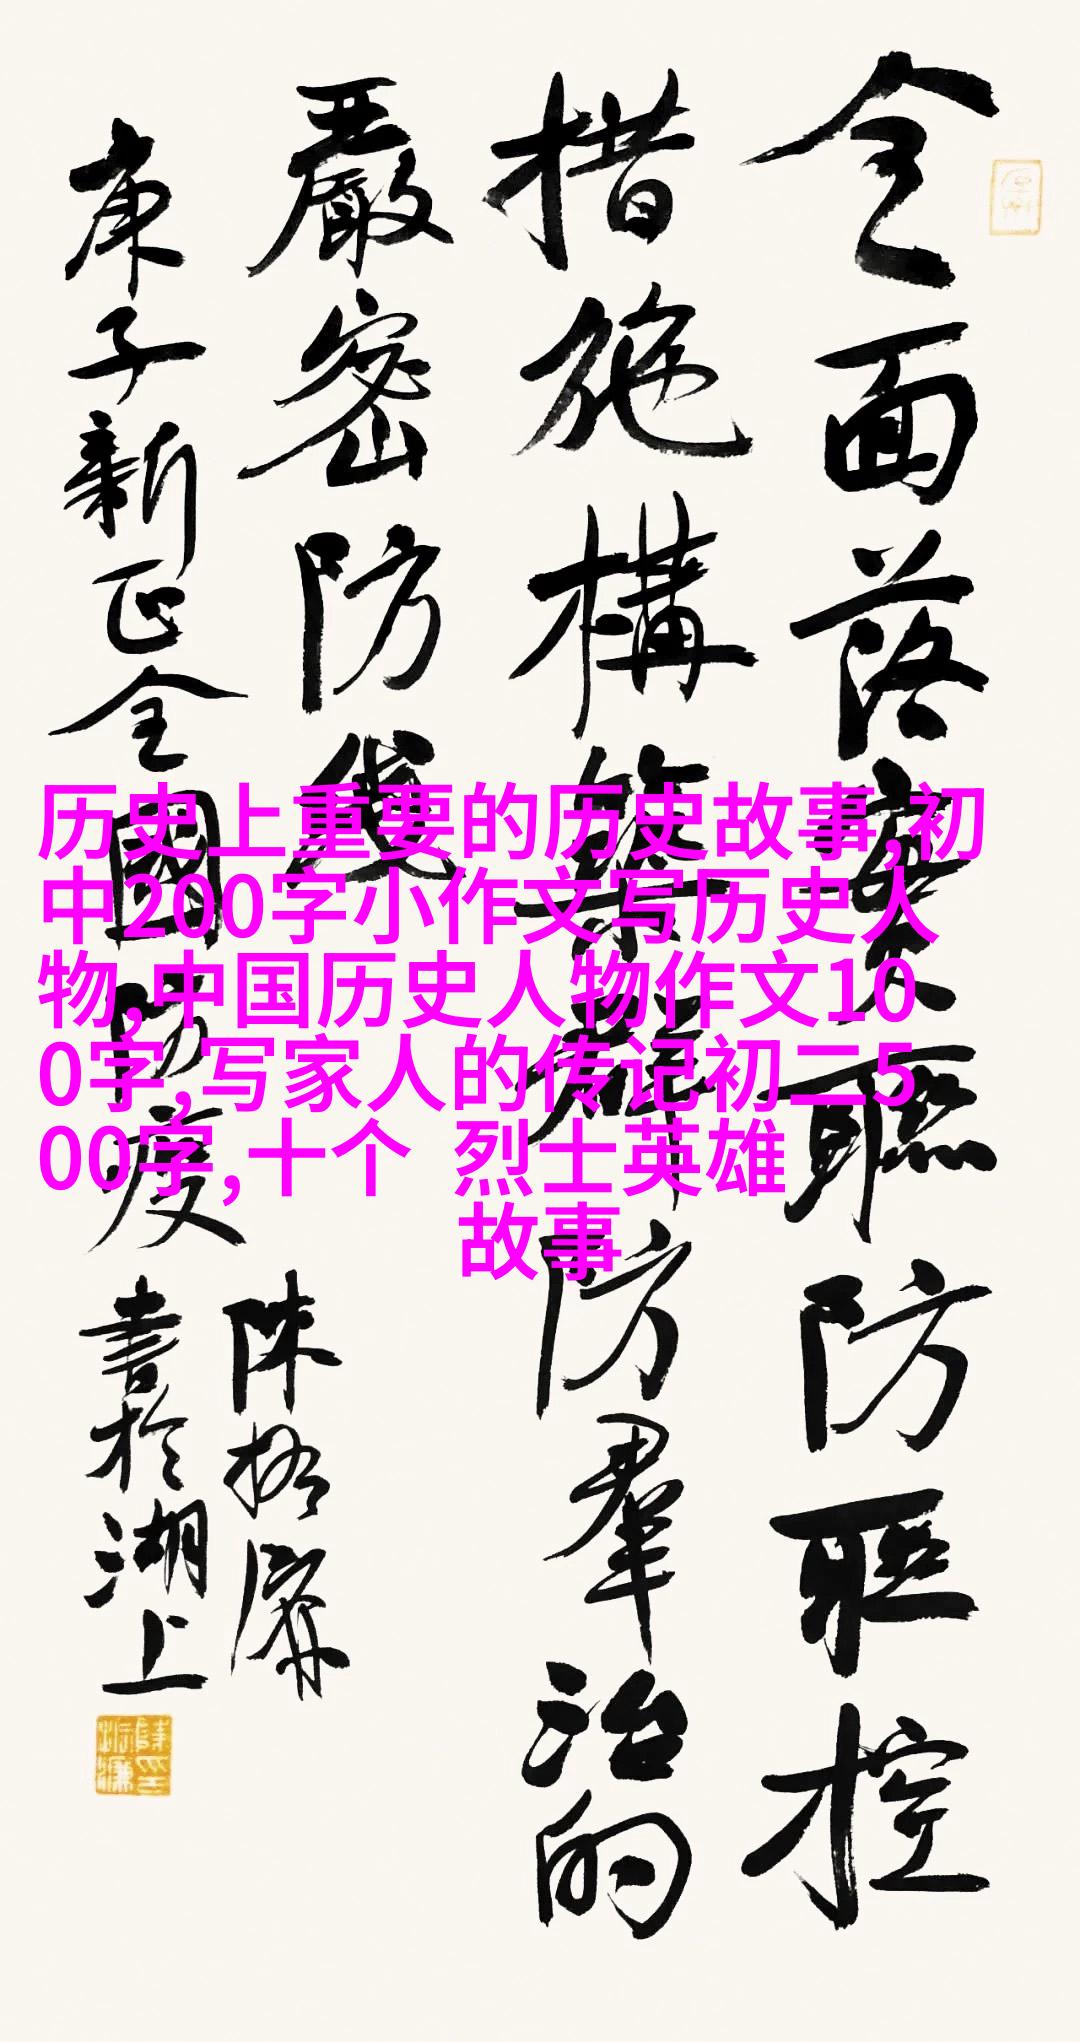 全面落實聯防聯控
措施構築群防羣治的
嚴密防线
庚子新正全國防疫
陳振濂
書於湖上
历史上重要的历史故事,初
中200字小作文写历史人
物,中国历史人物作文10
0字,写家人的传记初二5
00字,十个 烈士英雄
故事